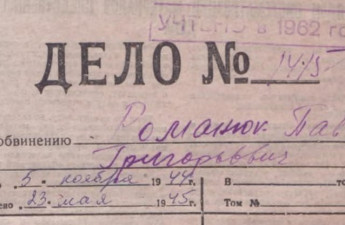 УЧТЕНО в 1962 го
ДЕЛО №
обвинению Романюк Пав
Григорьевич
5 ноября 1944 г. В то
ено 23 мая 1945 г. Том №